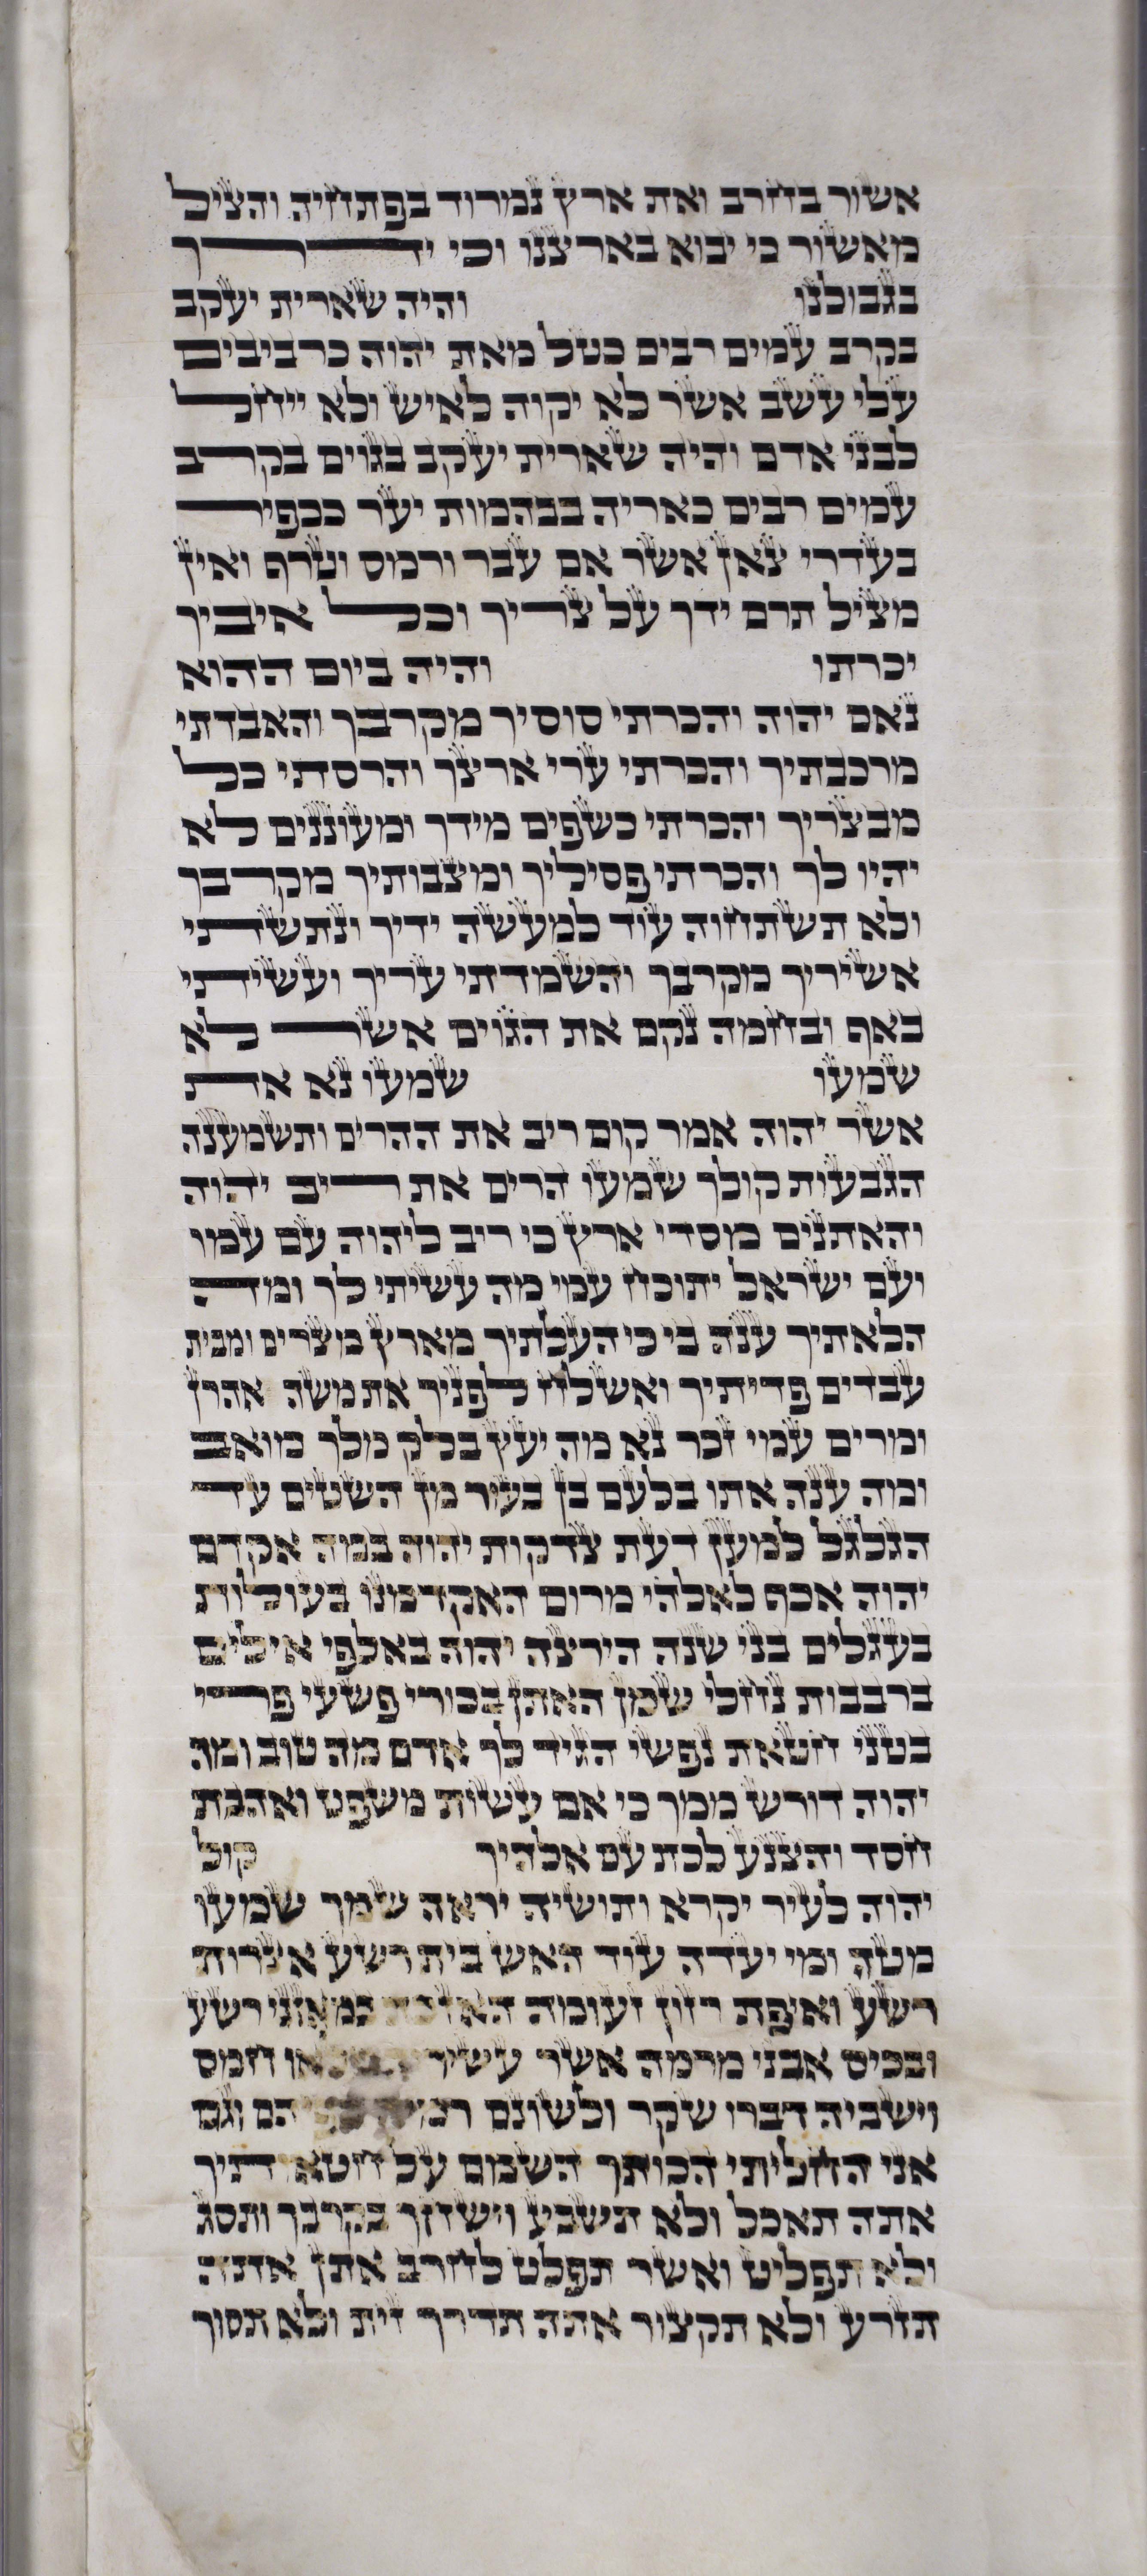 אשור בחרב ואת ארץ נמרוד בפתחיה והציל
מאשור כי יבוא בארצנו וכי ידרך
בגבולנו והיה שארית יעקב
בקרב עמים רבים כטל מאת יהוה כרביבים
עלי עשב אשר לא יקוה לאיש ולא ייחל
לבני אדם והיה שארית יעקב בגוים בקרב
עמים רבים כאריה בבהמות יער ככפיר
בעדרי צאן אשר אם עבר ורמס וטרף ואין
מציל תרם ידך על צריך וכל איביך
יכרתו והיה ביום ההוא
נאם יהוה והכרתי סוסיך מקרבך והאבדתי
מרכבתיך והכרתי ערי ארצך והרסתי כל
מבצריך והכרתי כשפים מידך ומעוננים לא
יהיו לך והכרתי פסיליך ומצבותיך מקרבך
ולא תשתחוה עוד למעשה ידיך ונתשתי
אשיריך מקרבך והשמדתי עריך ועשיתי
באף ובחמה נקם את הגוים אשר לא
שמעו שמעו נא את
אשר יהוה אמר קום ריב את ההרים ותשמענה
הגבעות קולך שמעו הרים את ריב יהוה
והאתנים מסדי ארץ כי ריב ליהוה עם עמו
ועם ישראל יתוכח עמי מה עשיתי לך ומה
הלאתיך ענה בי כי העלתיך מארץ מצרים ומבית
עבדים פדיתיך ואשלח לפניך את משה אהרן
ומרים עמי זכר נא מה יעץ בלק מלך מואב
ומה ענה אתו בלעם בן בעור מן השטים עד
הגלגל למען דעת צדקות יהוה במה אקדם
יהוה אכף לאלהי מרום האקדמנו בעולות
בעגלים בני שנה הירצה יהוה באלפי אילים
ברבבות נחלי שמן האתן בכורי פשעי פרי
בטני חטאת נפשי הגיד לך אדם מה טוב ומה
יהוה דורש ממך כי אם עשות משפט ואהבת
חסד והצנע לכת עם אלהיך קול
יהוה לעיר יקרא ותושיה יראה שמך שמעו
מטה ומי יעדה עוד האש בית רשע אצרות
רשע ואיפת רזון זעומה האזכה במאזני רשע
ובכיס אבני מרמה אשר עשיריה מלאו חמס
וישביה דברו שקר ולשונם רמיה בפיהם וגם
אני החליתי הכותך השמם על חטאתיך
אתה תאכל ולא תשבע וישחך בקרבך ותסג
ולא תפליט ואשר תפלט לחרב אתן אתה
תזרע ולא תקצור אתה תדרך זית ולא תסוך